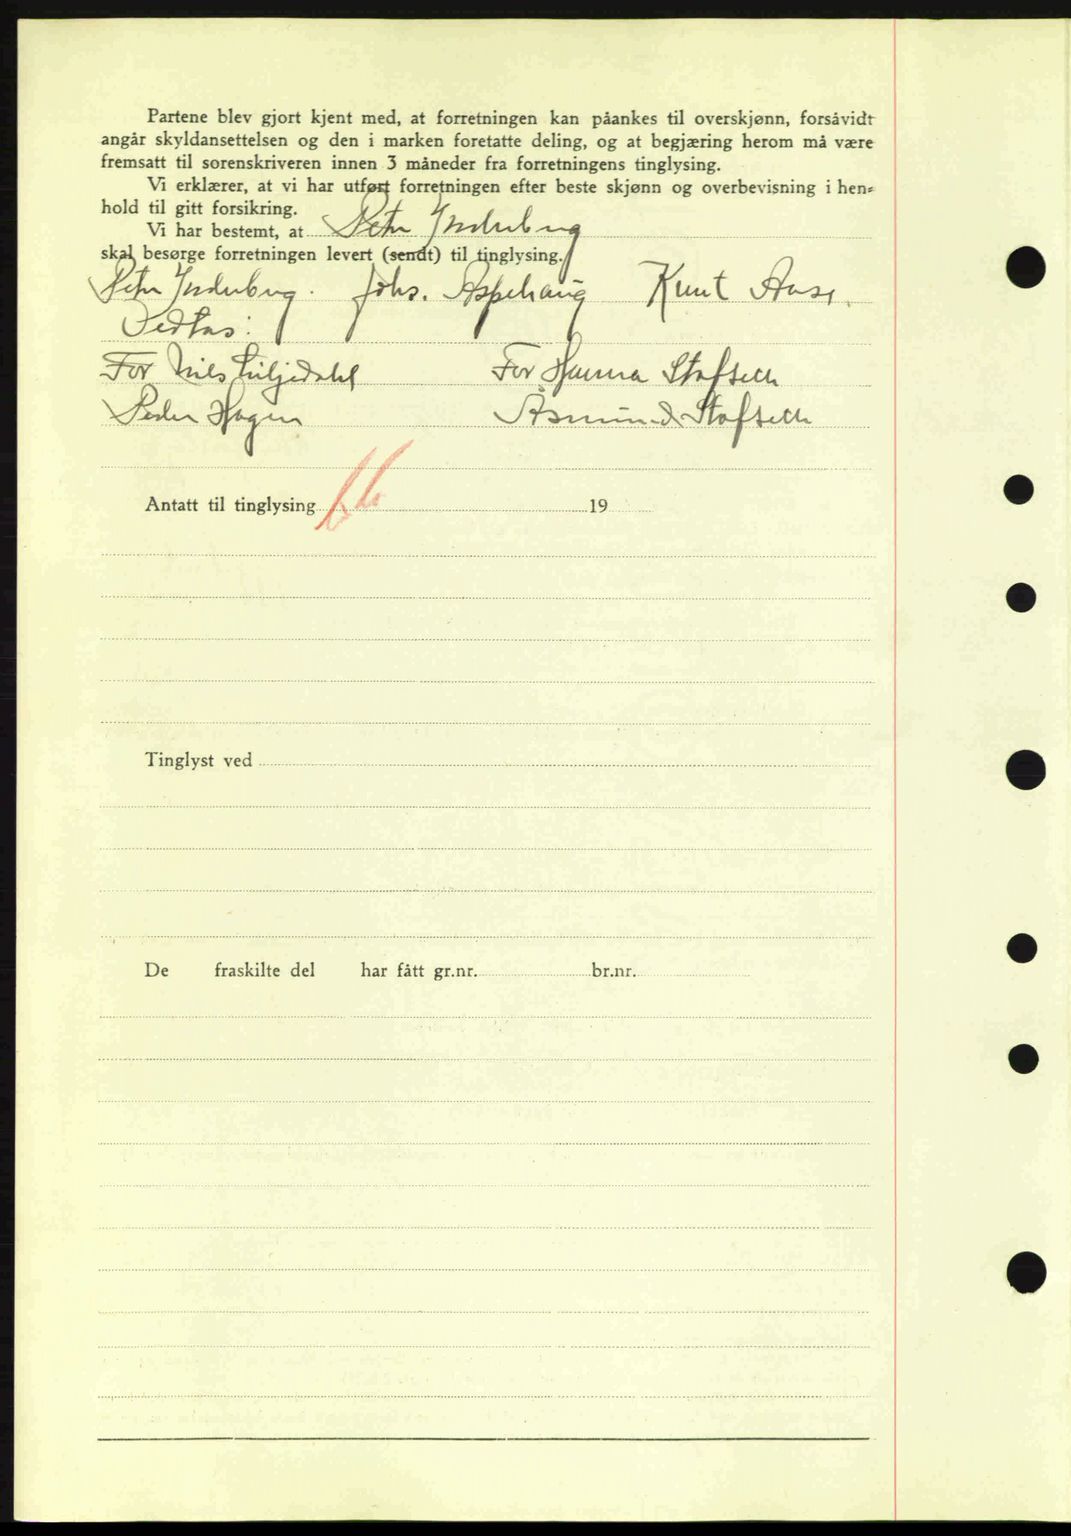 Partene blev gjort kjent med, at forretningen kan påankes til overskjønn, forsåvidt
angår skyldansettelsen og den i marken foretatte deling, og at begjæring herom må være
fremsatt til sorenskriveren innen 3 måneder fra forretningens tinglysing.
Vi erklærer, at vi har utført forretningen efter beste skjønn og overbevisning i hen-
hold til gitt forsikring.
Vi har bestemt, at Petr Inderberg
skal besørge forretningen levert (sendt) til tinglysing.
Petr Inderberg. Johs. Aspehaug Knut Aase.
Vedtas:
For Nils Liljedahl For Hanna Stafseth
Peder Hagen Åsmund Stafseth
Antatt til tinglysing 19
Tinglyst ved
De fraskilte del har fått gr.nr. br.nr.